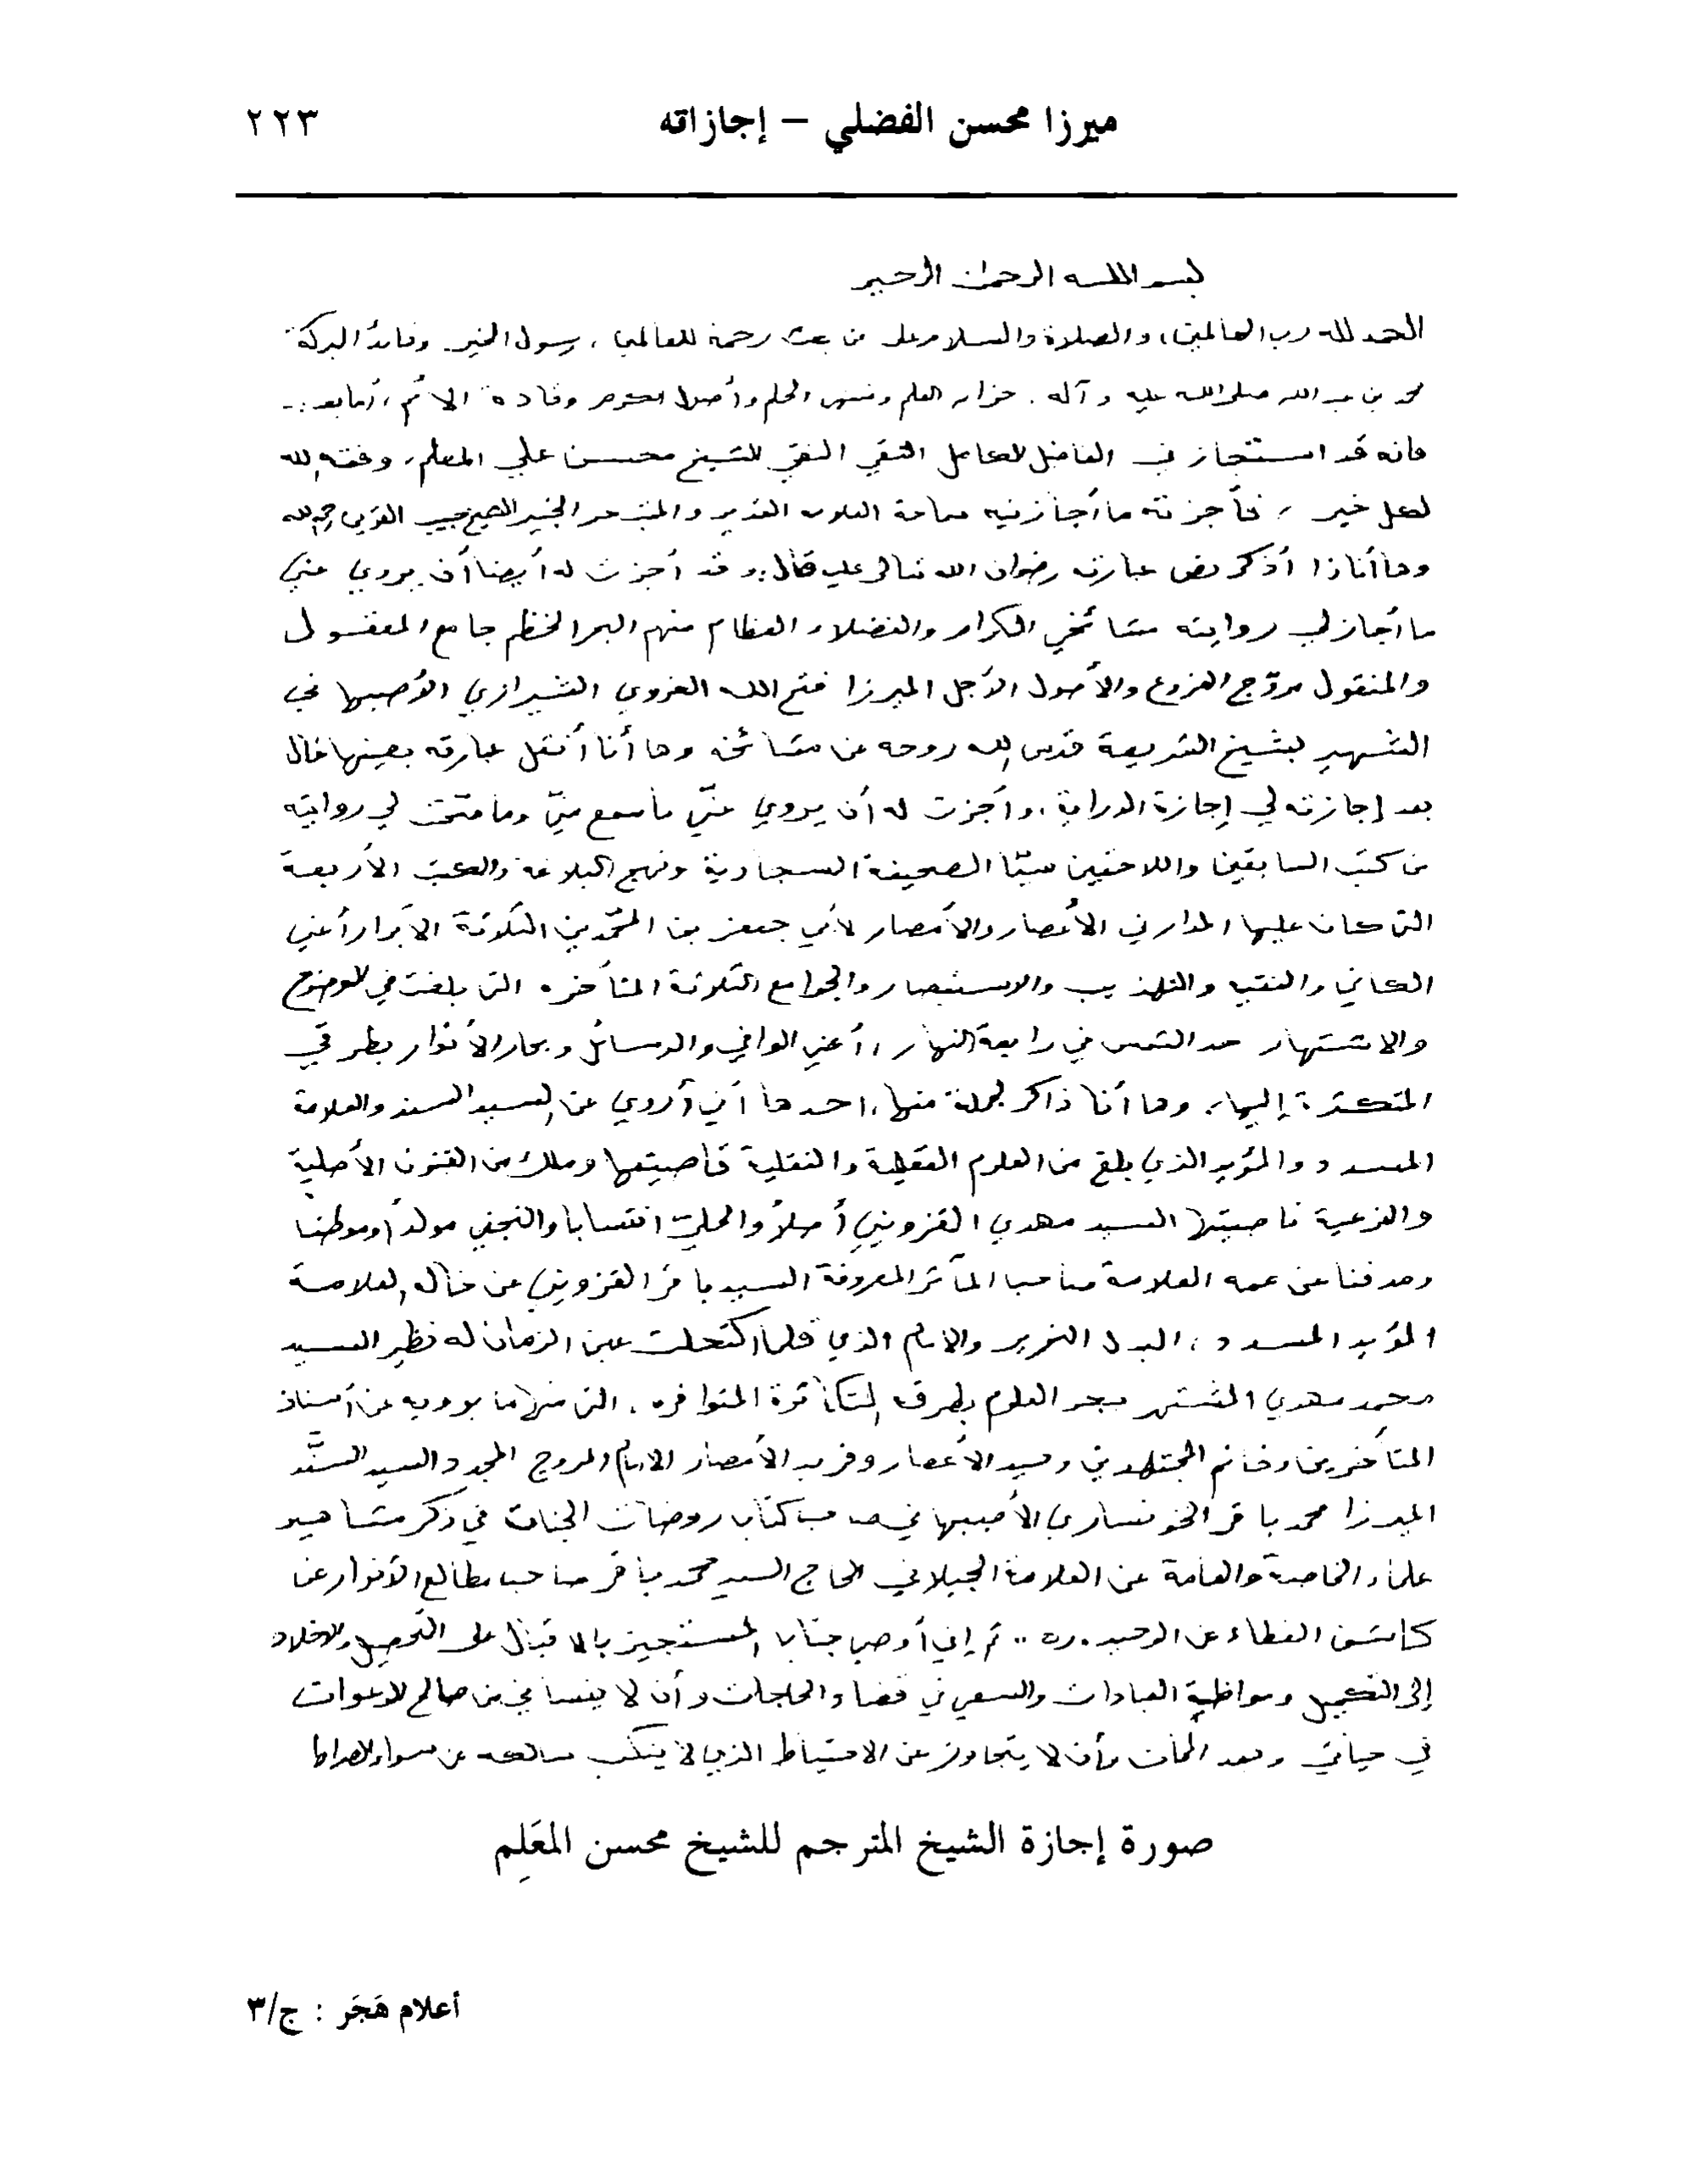 ميرزا محسن الفضلي – إجازاته ٢٢٣
بسم الله الرحمن الرحيم
الحمد لله رب العالمين، والصلاة والسلام على من بعث رحمة للعالمين، رسول الخير وقائد البركة
محمد بن عبد الله صلى الله عليه وآله. خزان العلم ومنتهى الحلم وأصول الكرم وقادة الأمم، أما بعد:-
فانه قد استجازني الفاضل الكامل التقي النقي الشيخ محسن علي المعلم، وفقه الله
لكل خير، فأجزته ما أجازنيه سماحة العلامة القدير والمتبحر الخبير الشيخ حبيب القريني رحمه الله
وها أنا ذا أذكر نص عبارته رضوان الله تعالى عليه قال: وقد أجزت له أيضا أن يروي عني
ما أجاز لي روايته مشائخي الكرام والفضلاء العظام منهم البحر الخظم جامع المعقول
والمنقول مروّج الفروع والأصول الأجل الميرزا فتح الله الغروي الشيرازي الأصبهاني
الشهير بشيخ الشريعة قدس الله روحه عن مشائخه وها أنا أنقل عبارته بعينها قال
بعد إجازته لي إجازة الدراية، وأجزت له أن يروي عنّي ما سمع منّي وما صحّت لي روايته
من كتب السابقين واللاحقين سيّما الصحيفة السجادية ونهج البلاغة والكتب الأربعة
التي كان عليها المدار في الأعصار والأمصار لأبي جعفر بن المحمّدين الثلاثة الأبرار أعني
الكافي والفقيه والتهذيب والاستبصار والجوامع الثلاثة المتأخره التي بلغت في الوضوح
والاشتهار حد الشمس في رابعة النهار، أعني الوافي والوسائل وبحار الأنوار بطرقي
المتكثرة إليها، وها أنا ذاكر لجملة منها، احدها أني أروي عن السيد السند والعلامة
المسدد والمؤيد الذي بلغ من العلوم العقلية والنقلية قاصيتها وملك من الفنون الأصلية
والفرعية ناصيتها السيد مهدي القزويني أصلاً والحلي انتسابا والنجفي مولداً وموطنا
ومدفنا عن عمه العلامة صاحب المآثر المعروفة السيد باقر القزويني عن خاله العلامة
المؤيد المسدد، البدل النحرير والامام الذي قلما اكتحلت عين الزمان له نظير السيد
محمد مهدي المشتهر ببحر العلوم بطرقه المتكاثرة المتوافره، التي منها ما يرويه عن أستاذ
المتأخرين وخاتم المجتهدين وسيد الأعصار وفريد الأمصار الامام المروج المجدد السيد السنّد
الميرزا محمد باقر الخونساري الأصبهاني صاحب كتاب روضات الجنات في ذكر مشاهير
علماء الخاصة والعامة عن العلامة الجيلاني الحاج السيد محمد باقر صاحب مطالع الأنوار عن
كاشف الغطاء عن الوحيد . ره .. ثم إني أوصي جناب المستجيز بالاقبال على التحصيل والاخلاد
إلى التكميل ومواظبة العبادات والسعي في قضاء الحاجات وأن لا ينساني من صالح الدعوات
في حياتي وبعد الممات وأن لا يتجاوز عن الاحتياط الذي لا ينكب سالكه عن سواء الصراط
صورة إجازة الشيخ المترجم للشيخ محسن المعَلِم
أعلام هَجَر : ج/٣